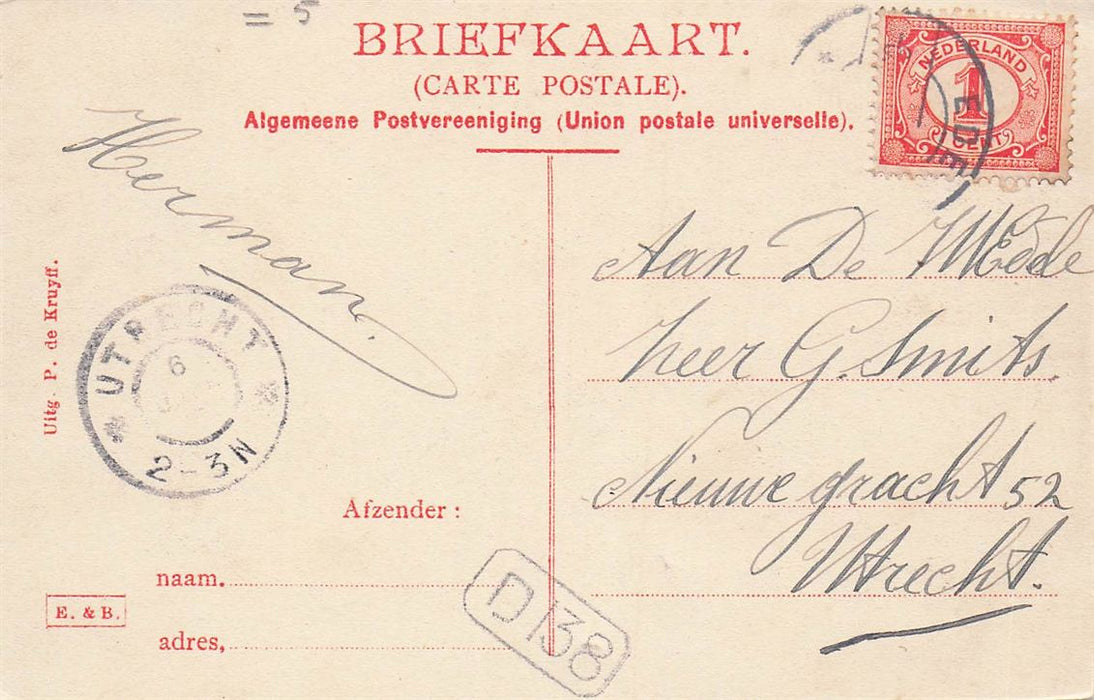 = 5
BRIEFKAART.
(CARTE POSTALE).
Algemeene Postvereeniging (Union postale universelle).
NEDERLAND
1
CENT
EDE
Herman.
Aan De WEde
heer G. Smits.
Nieuwe gracht 52
Utrecht.
Uitg. P. de Kruyff.
UTRECHT
6
2-3N
Afzender:
naam,
adres,
E. & B.
D 138